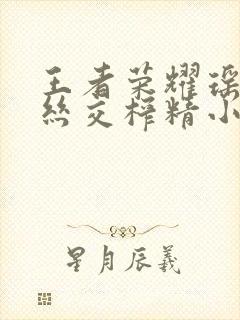 王者荣耀瑶
丝交榨精小
星月辰羲